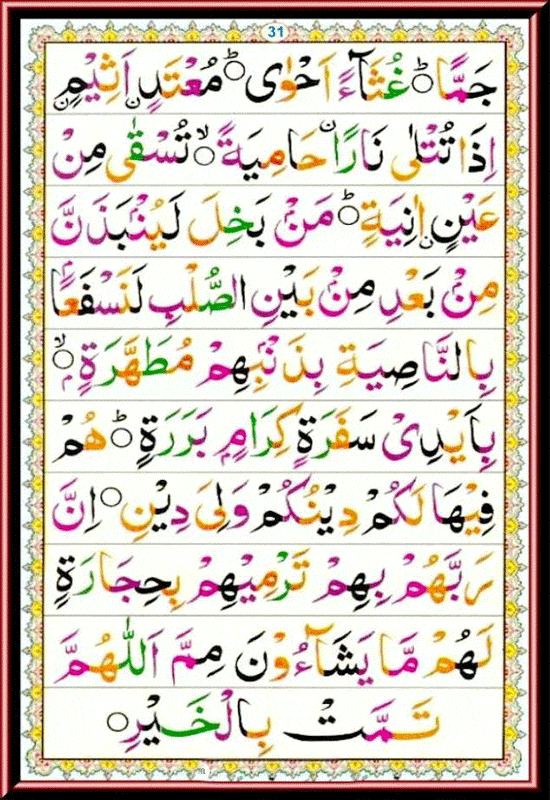 31
جَمًّا ؕ غُثَآءً اَحْوٰى ؕ مُعْتَدٍ اَثِيْمٍ ۙ
اِذَا تُتْلٰى نَارًا حَامِيَةً ۙ تُسْقٰى مِنْ
عَيْنٍ اٰنِيَةٍ ؕ مَنْۢ بَخِلَ لَيُنْۢبَذَنَّ
مِنْۢ بَعْدِ مِنْۢ بَيْنِ الصُّلْبِ لَنَسْفَعًاۢ
بِالنَّاصِيَةِ بِذَنْۢبِهِمْ مُطَهَّرَةٍۭ ۙ
بِاَيْدِىْ سَفَرَةٍ كِرَامٍۭ بَرَرَةٍ ؕ هُمْ
فِيْهَا لَكُمْ دِيْنُكُمْ وَلِىَ دِيْنِ ۝ اِنَّ
رَبَّهُمْ بِهِمْ تَرْمِيْهِمْ بِحِجَارَةٍ
لَهُمْ مَّا يَشَآءُوْنَ مِمَّ اَللّٰهُمَّ
تَمَّتْ بِالْخَيْرِ ۝